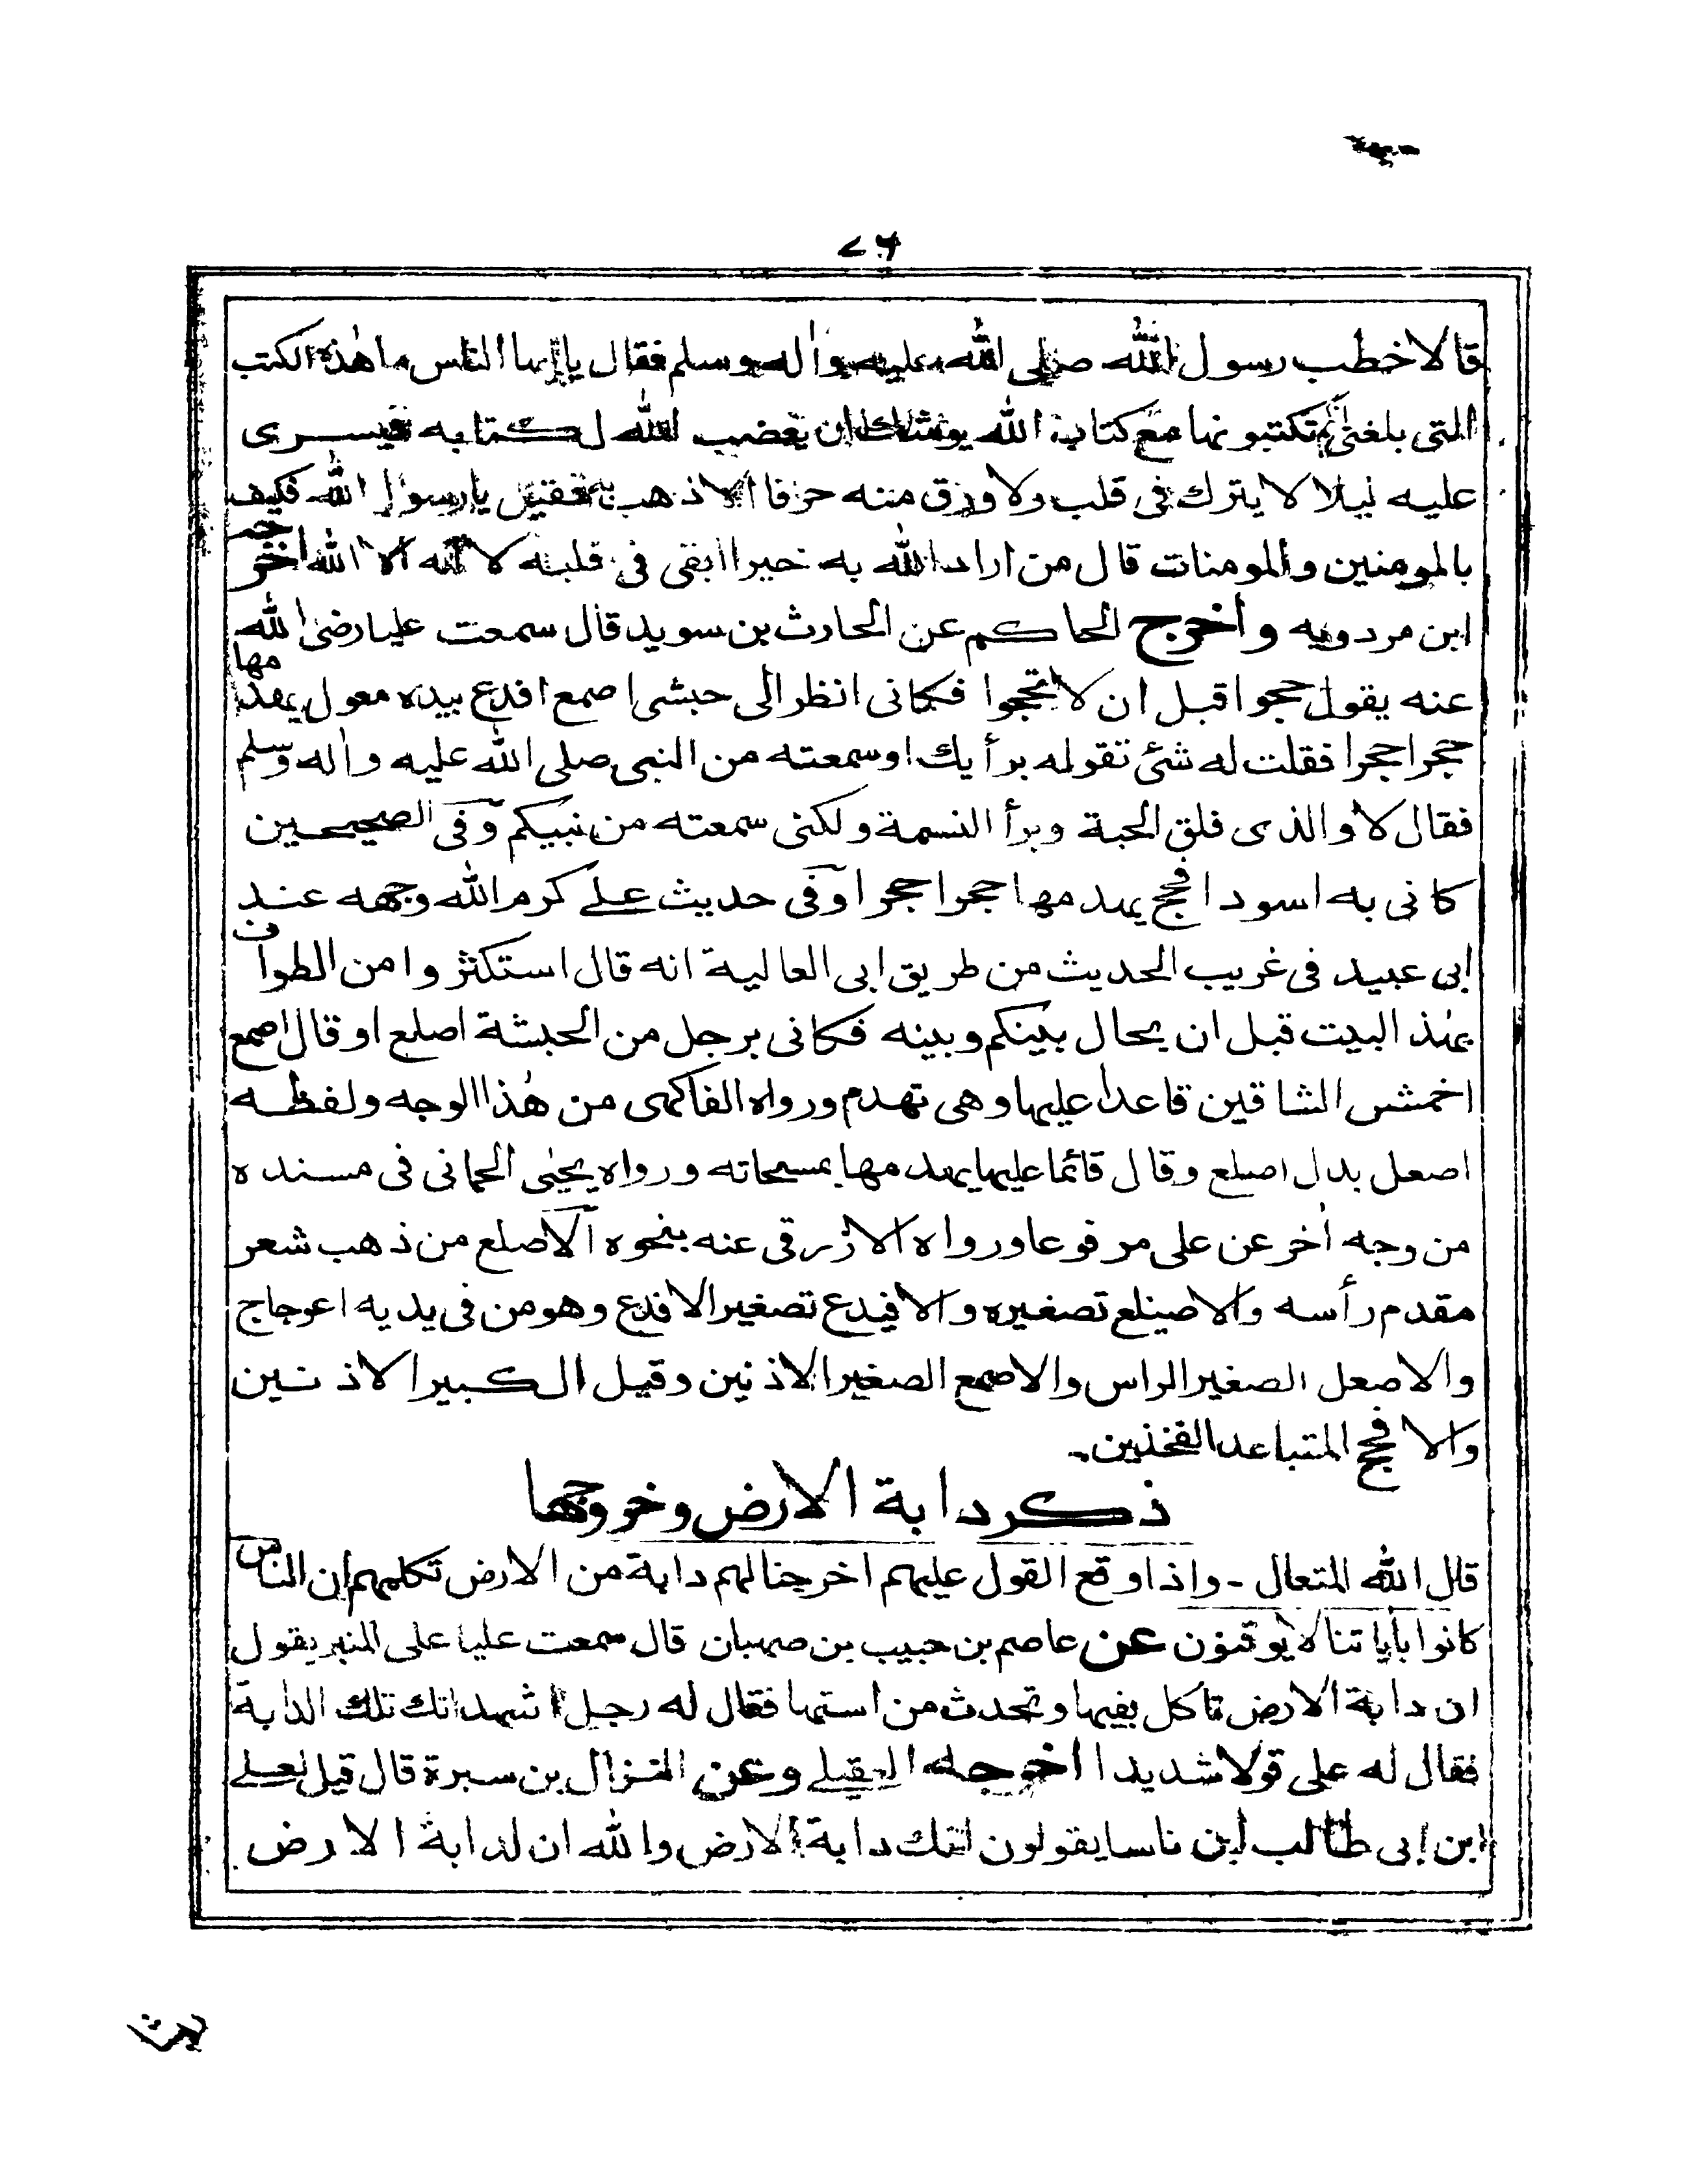 ٧٦
قالا خطب رسول الله صلى الله عليه واٰله وسلم فقال يا ايها الناس ما هٰذه الكتب
التى بلغنى انكم تكتبونها مع كتاب الله يوشك ان يغضب الله لكتابه فيسرى
عليه ليلا لا يترك فى قلب ولا ورق منه حرفا الا ذهب به فقيل يا رسول الله فكيف
بالمومنين والمومنات قال من اراد الله به خيرا ابقى فى قلبه لا اله الا الله اخرجه
ابن مردويه وأخرج الحاكم عن الحارث بن سويد قال سمعت عليا رضى الله
عنه يقول حجوا قبل ان لا تحجوا فكانى انظر الى حبشى اصمع افدع بيده معول يهدمها
حجرا حجرا فقلت له شئ تقوله برأيك او سمعته من النبى صلى الله عليه واٰله وسلم
فقال لا والذى فلق الحبة وبرأ النسمة ولكنى سمعته من نبيكم وفى الصحيحين
كانى به اسود افحج يهدمها حجرا حجرا وفى حديث على كرم الله وجهه عند
ابى عبيد فى غريب الحديث من طريق ابى العالية انه قال استكثروا من الطواف
بهٰذ البيت قبل ان يحال بينكم وبينه فكانى برجل من الحبشة اصلع او قال اصمع
اخمش الشاقين قاعدا عليها وهى تهدم ورواه الفاكهى من هٰذا الوجه ولفظه
اصعل بدل اصلع وقال قائما عليها يهدمها بمسحاته ورواه يحيٰى الحمانى فى مسنده
من وجه اٰخر عن على مرفوعا ورواه الازرقى عنه بنحوه الاصلع من ذهب شعر
مقدم رأسه والاصيلع تصغيره والافيدع تصغير الافدع وهو من فى يديه اعوجاج
والاصعل الصغير الراس والاصمع الصغير الاذنين وقيل الكبير الاذنين
والافحج المتباعد الفخذين۔
ذكر دابة الارض وخروجها
قال الله المتعال - واذا وقع القول عليهم اخرجنا لهم دابة من الارض تكلمهم ان الناس
كانوا بأياتنا لا يوقنون عن عاصم بن حبيب بن صهبان قال سمعت عليا على المنبر يقول
ان دابة الارض تاكل بفيها وتحدث من استها فقال له رجل اشهد انك تلك الدابة
فقال له على قولا شديدا اخرجه العقيلى وعن النزال بن سبرة قال قيل لعلى
ابن ابى طالب ان ناسا يقولون انك دابة الارض والله ان لدابة الارض